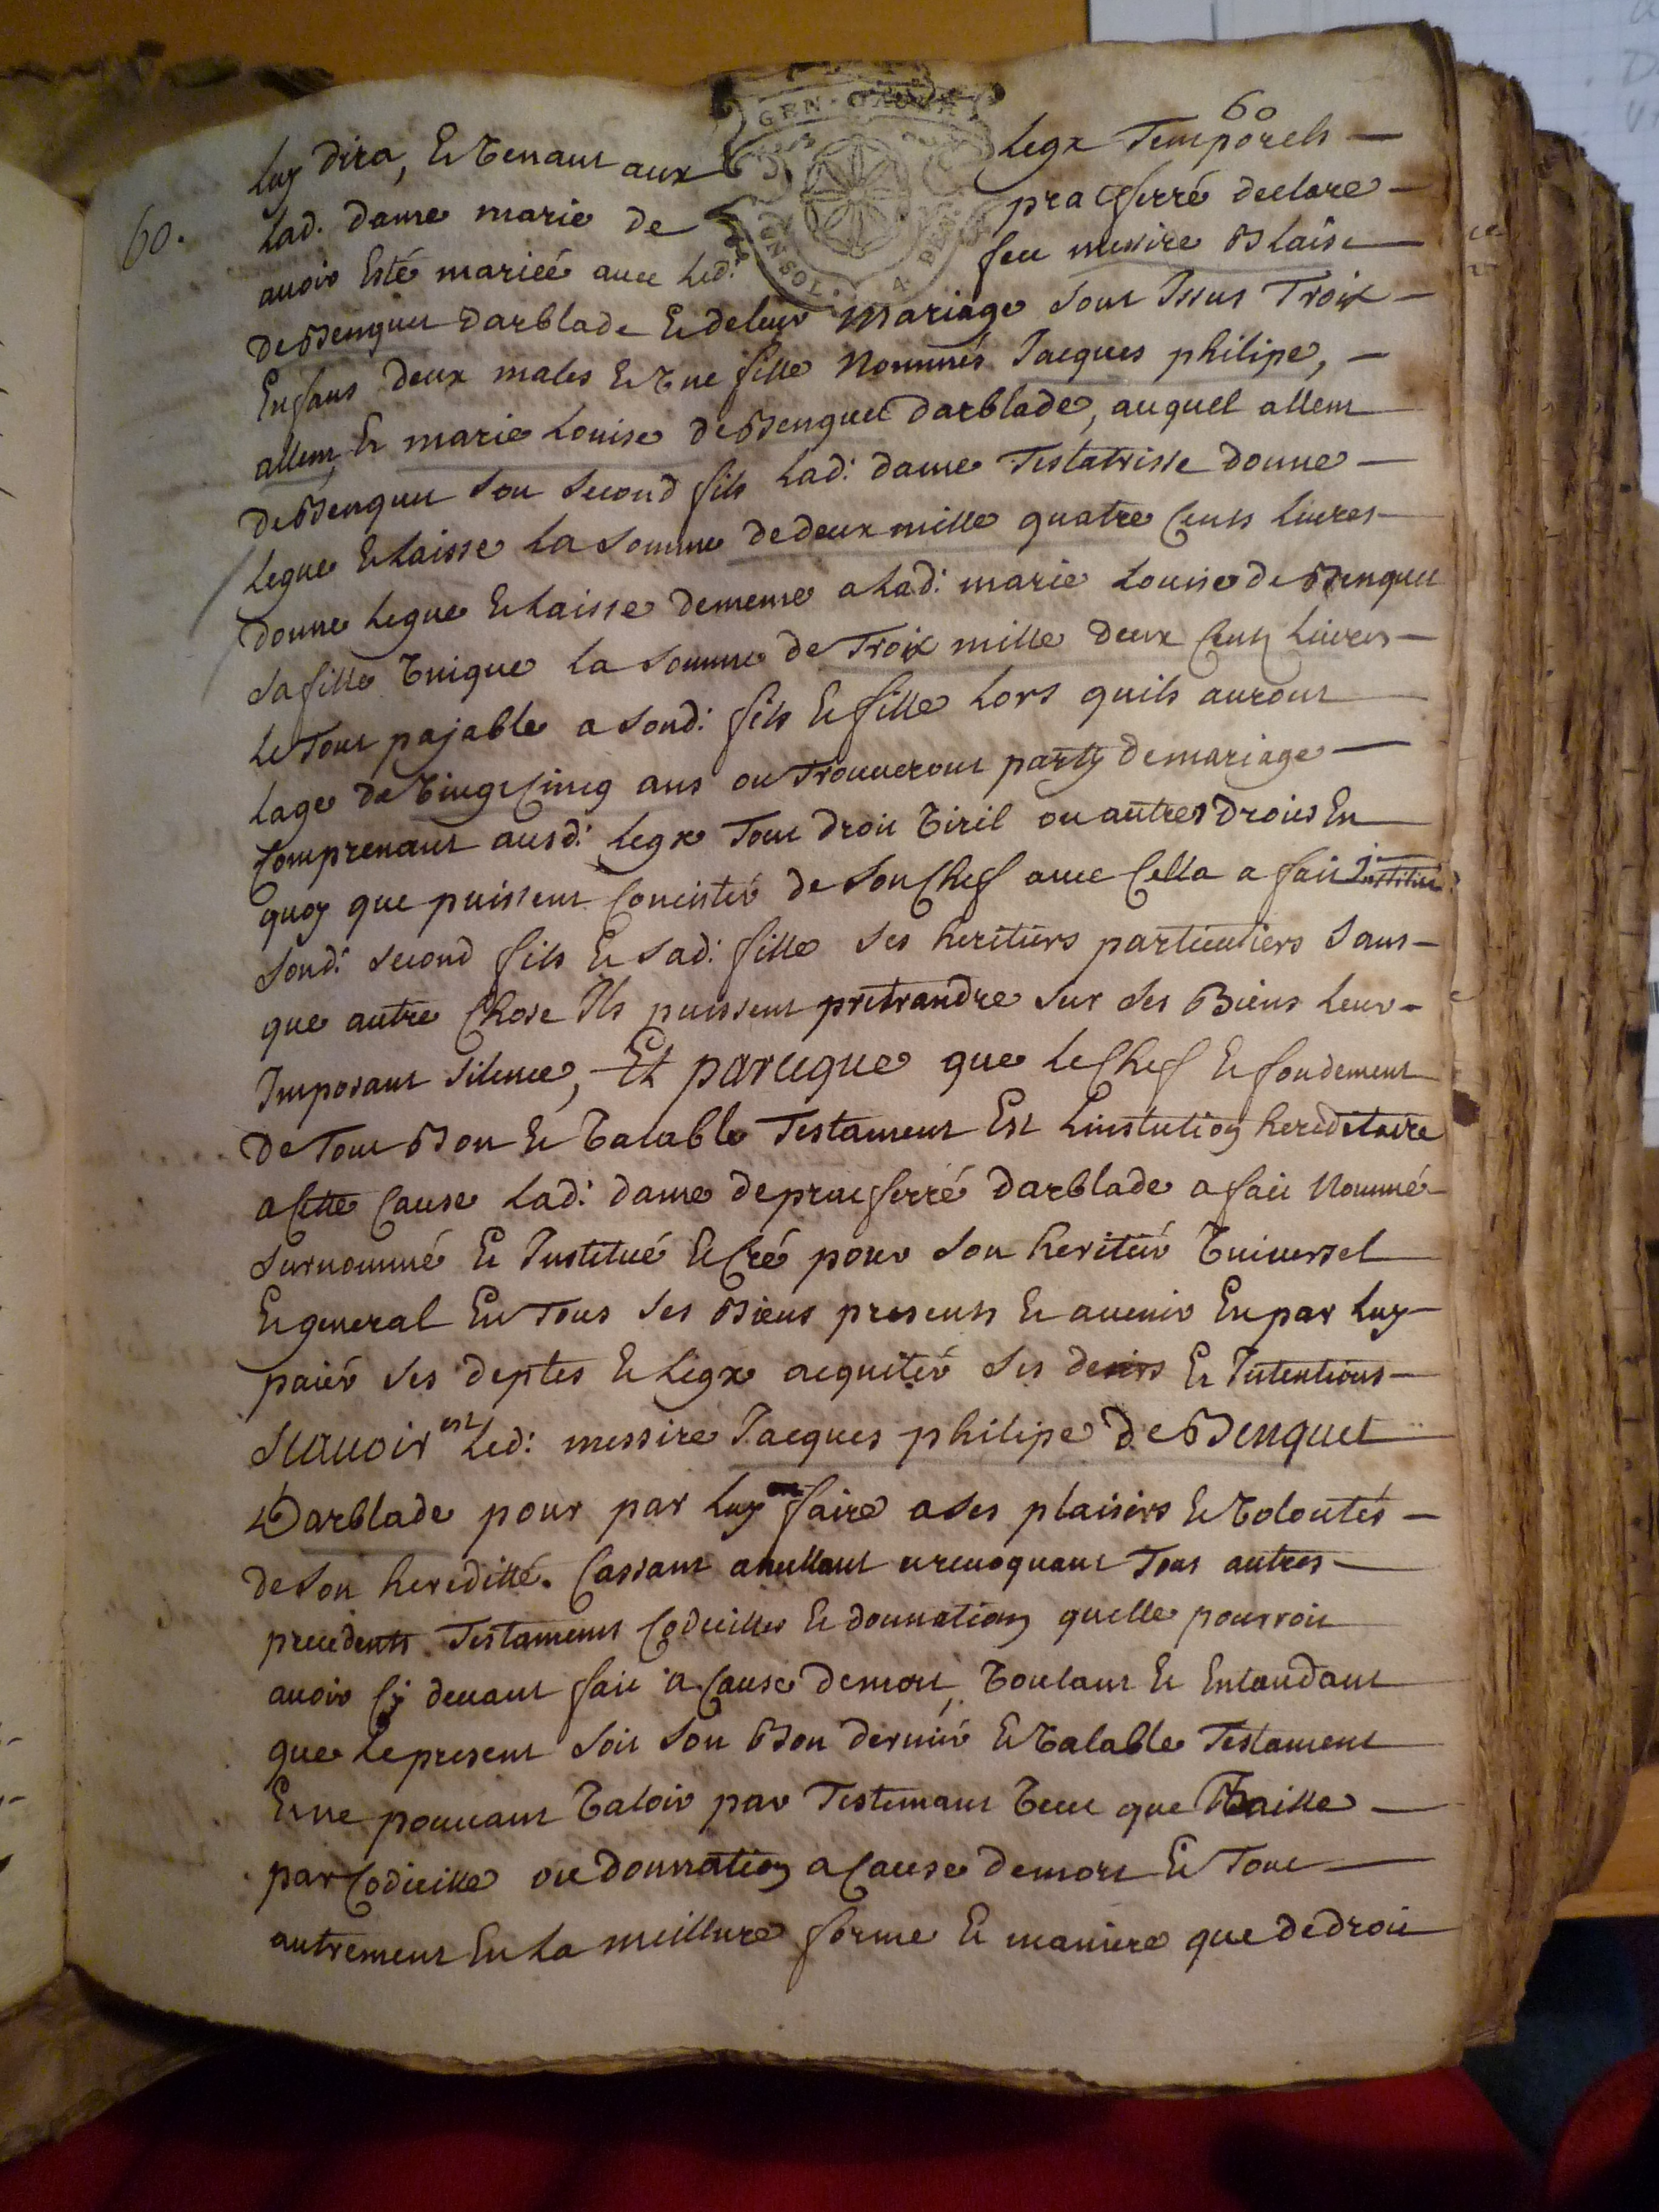 60
60.
luy dira, Et Venant aux legx Temporels
Lad. dame marie de pracferré declare
auoir Esté marieé auec led: feu messire Blaise
De Benquet darblade Et deleur Mariage sont Issus Trois
Enfans deux males Et Vne fille Nommés Jacques philipe,
allem, Et marie Louise de Benquet darblade, auquel allem
de Benquet son second fils Lad: dame Testatrisse donne
legue Et laisse La somme de deux mille quatre Cents liures
donne legue Et laisse dememe a lad: marie Louise de Benquet
sa fille Vnique La somme de Troix mille deux Cents liures
le Tout pajable a sond: fils Et fille Lors quils auront
Lage de Vingt Cincq ans ou Trouueront party demariage
Comprenant ausd: legx Tout droit Viril ou autres droits En
quoy que puissent Concister de son Chef auec Cella a fait Institué
sond: second fils Et sad: fille ses heritiers particuliers sans
que autre Chose Ils puissent pretrandre sur ses Biens leur
Imposant silence, Et parceque que le Chef Et fondement
de Tout Bon Et Valable Testament Est Linstution hereditaire
a Cette Cause Lad: dame depracferré darblade a fait Nommé
surnommé Et Institué Et Cré pour son heritier Vniuersel
Et general En Tous ses Biens presents Et auenir En par luy
paier ses deptes Et legx acquiter ses desirs Et Intentions
scauoir est led: messire Jacques philipe de Benquet
Darblade pour par luy faire a ses plaisirs Et Volontés
de son hereditté. Cassant anullant Et reuoquant Tous autres
precedents Testaments Codicilles Et donnations quelle pourroit
auoir Cy deuant fait a Cause demort, Voulant Et Entandant
que le present soit son Bon dernier Et Valable Testament
Et ne pouuant Valoir par Testemant Veut que Vaille
par Codicille ou donnation a Cause demort Et Tout
autrement En La meillure forme Et maniere que dedroit
GEN